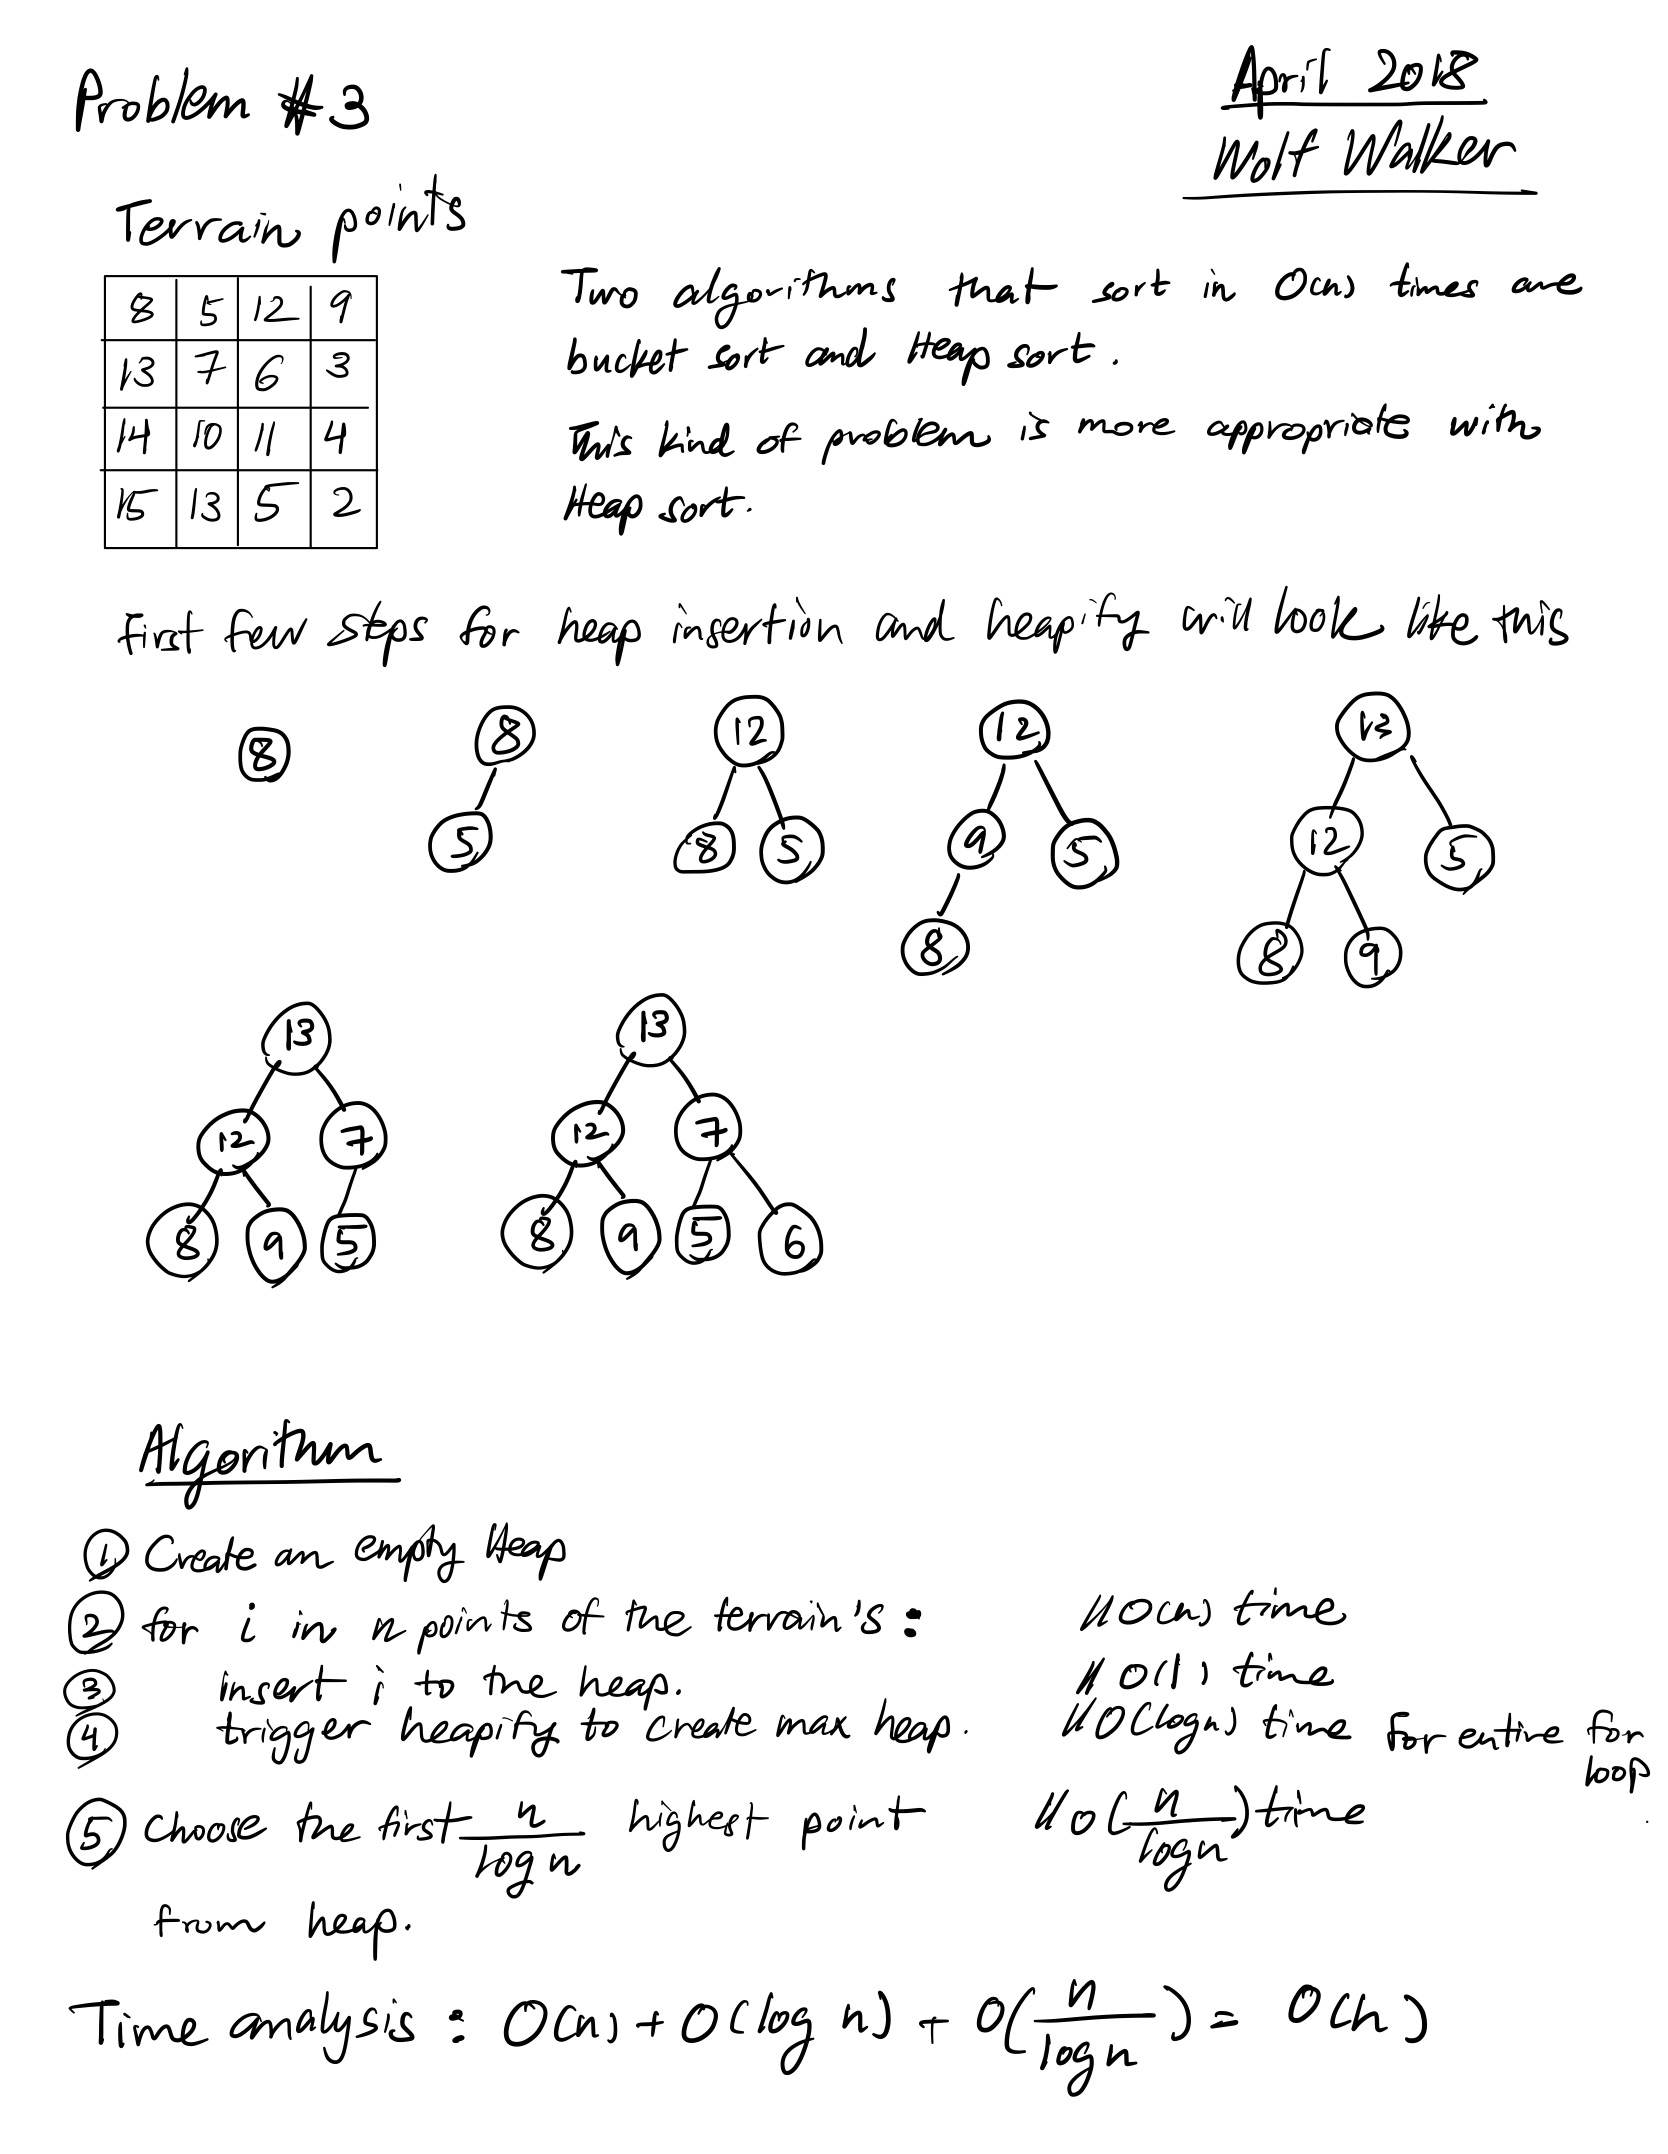 Problem #3
April 2018
Wolf Walker
Terrain points
8 5 12 9
13 7 6 3
14 10 11 4
15 13 5 2
Two algorithms that sort in O(n) times are
bucket sort and Heap sort.
This kind of problem is more appropriate with
Heap sort.
First few steps for heap insertion and heapify will look like this
8
8
5
12
8 5
12
9 5
8
13
12 5
8 9
13
12 7
8 9 5
13
12 7
8 9 5 6
Algorithm
① Create an empty Heap
② for i in n points of the terrain's: // O(n) time
③ insert i to the heap. // O(1) time
④ trigger heapify to create max heap. // O(log n) time for entire for loop
⑤ Choose the first n/log n highest point // O(n/log n) time
from heap.
Time analysis: O(n) + O(log n) + O(n/log n) = O(n)